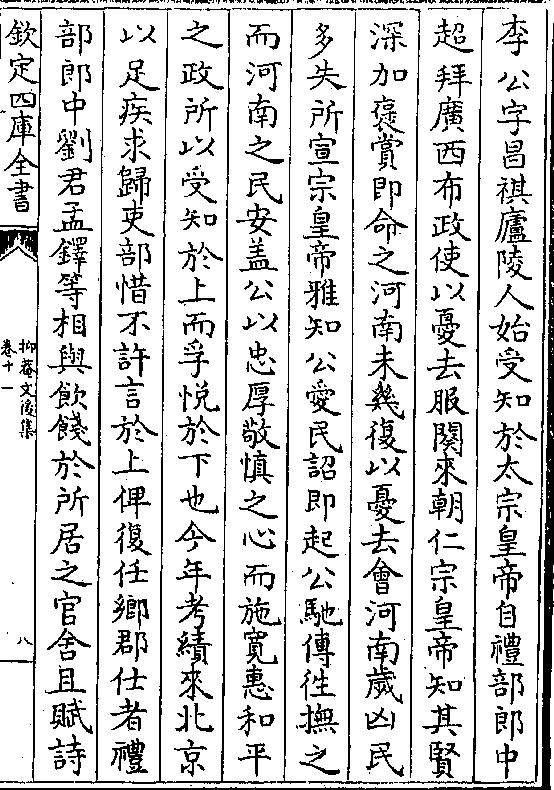 李公字昌祺廬陵人始受知於太宗皇帝自禮部郎中
超拜廣西布政使以憂去服闋來朝仁宗皇帝知其賢
深加褒賞即命之河南未幾復以憂去會河南歲凶民
多失所宣宗皇帝雅知公愛民詔即起公馳傳徃撫之
而河南之民安盖公以忠厚敬慎之心而施寛惠和平
之政所以受知於上而孚悦於下也今年考績來北京
以足疾求歸吏部惜不許言於上俾復任鄉郡仕者禮
部郎中劉君孟鐸等相與飲餞於所居之官舍且賦詩
欽定四庫全書
抑菴文後集
卷十一
八